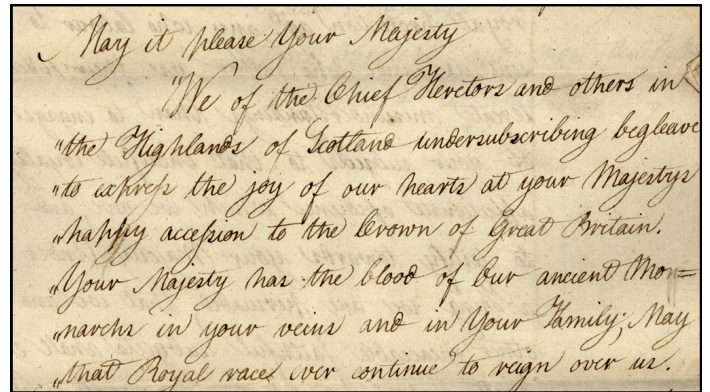 May it please Your Majesty
"We of the Chief Heretors and others in
"the Highlands of Scotland undersubscribing begleave
"to express the joy of our hearts at your Majestys
"happy accession to the Crown of Great Britain.
"Your Majesty has the blood of Our ancient Mon=
"narchs in your veins and in Your Family; May
"that Royal race ever continue to reign over us.